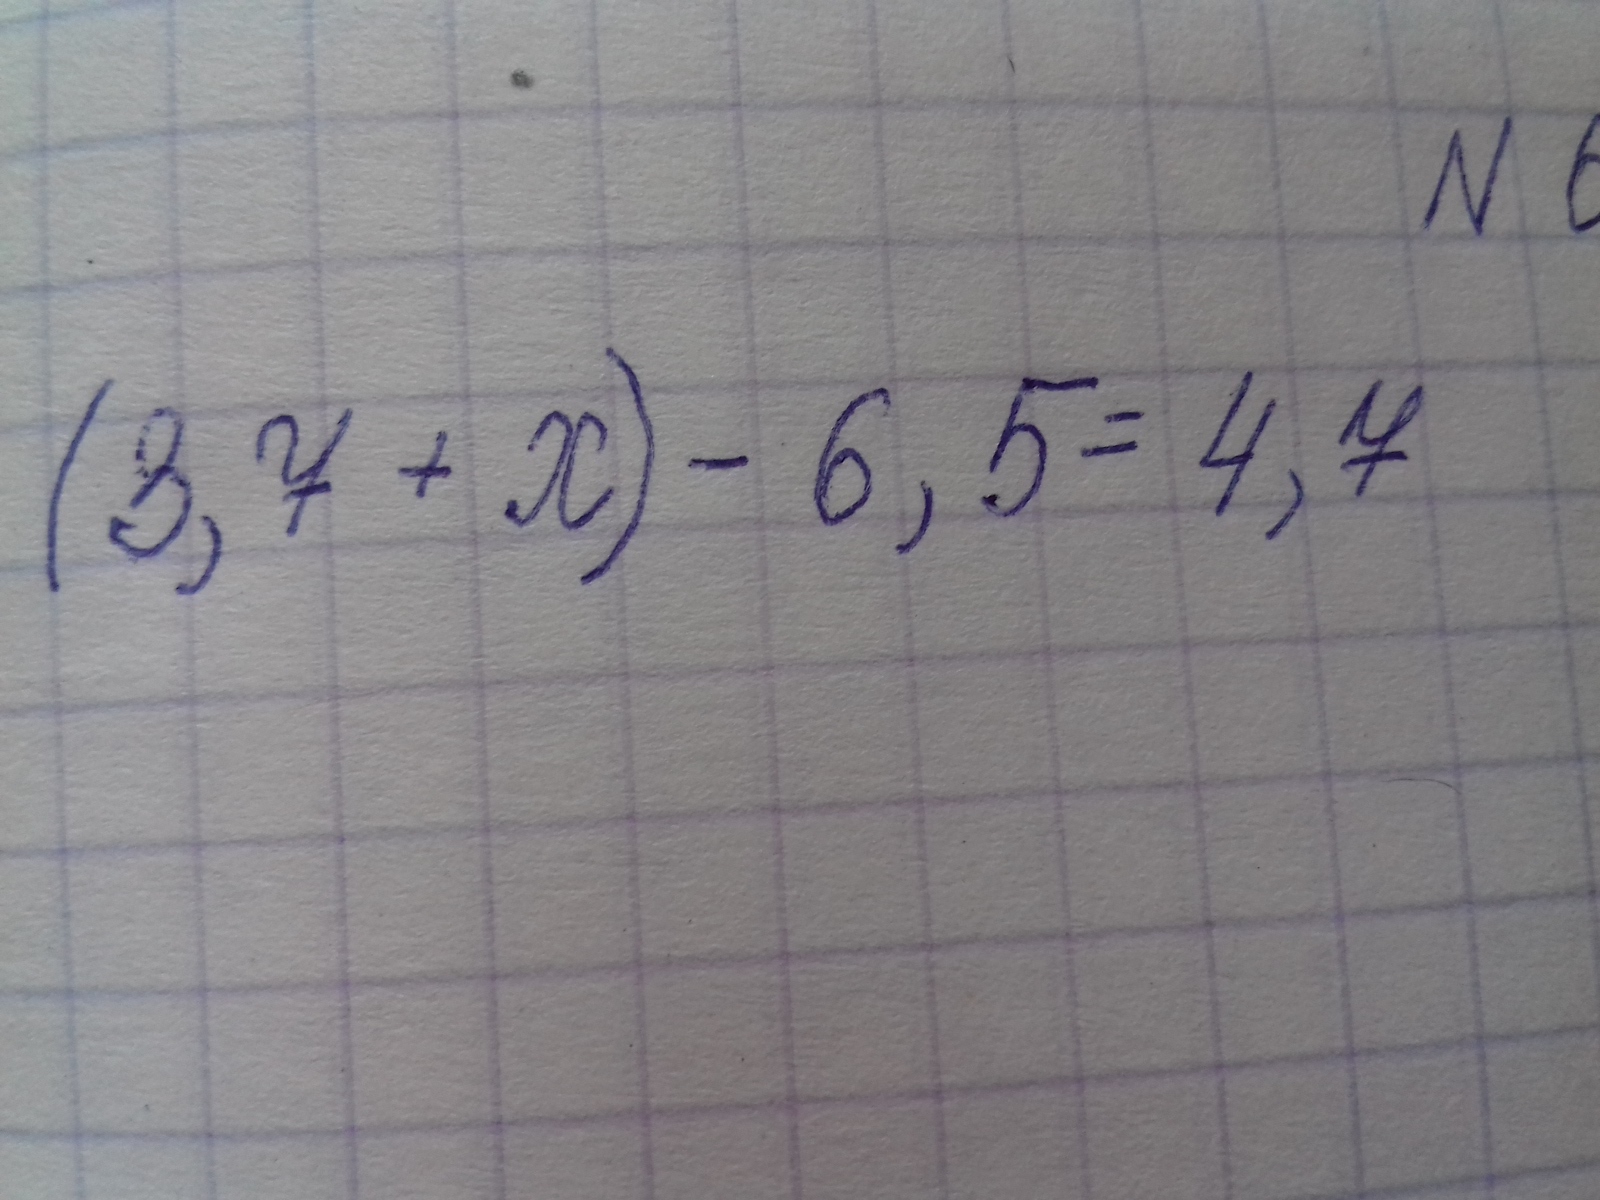 N 6
(3,7 + x) - 6,5 = 4,7